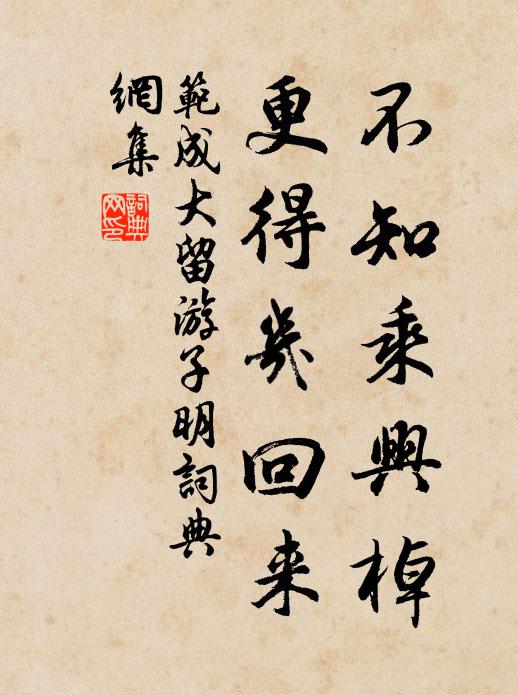 不知乘興棹
更得幾回来
範成大留游子明詞典
網集
詞典
网印